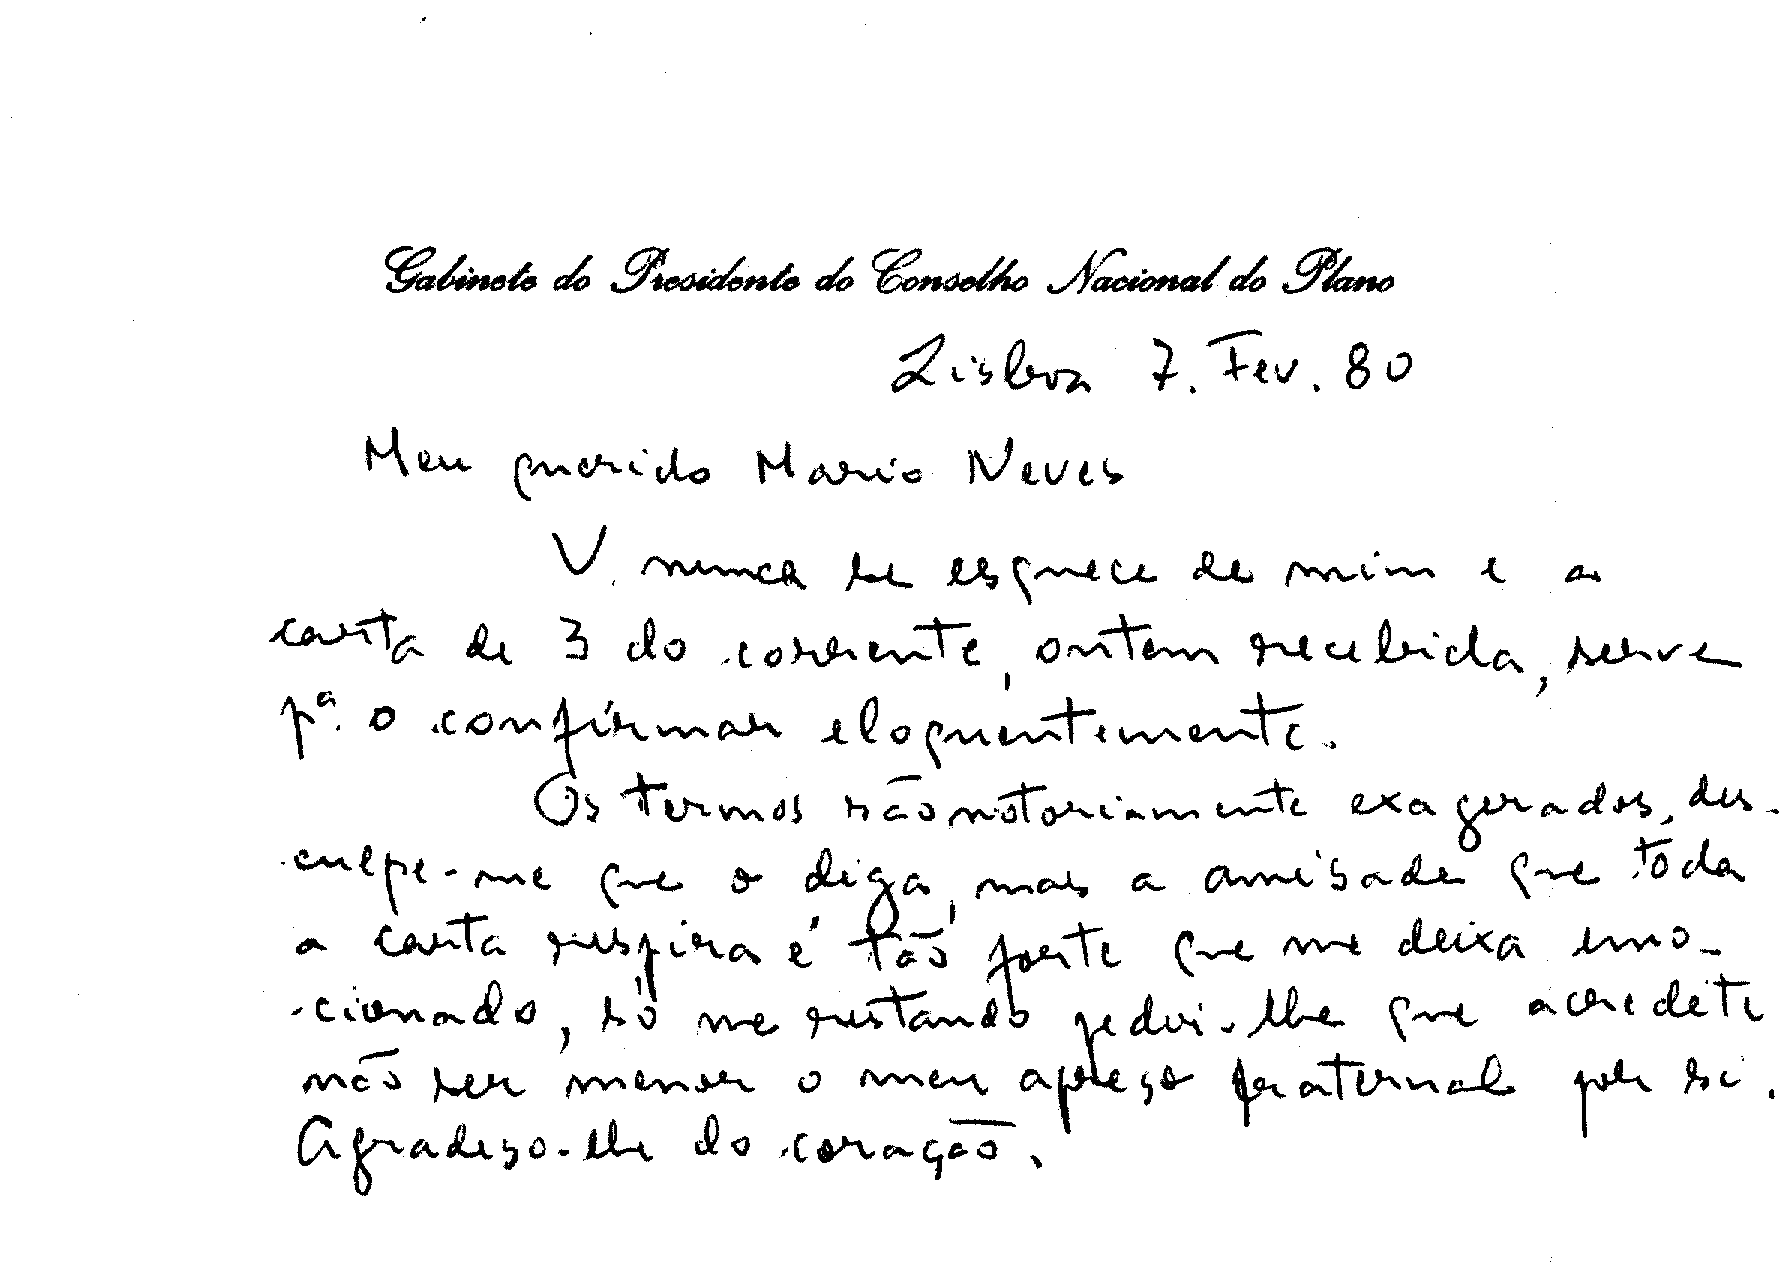 Gabinete do Presidente do Conselho Nacional do Plano
Lisboa 7. Fev. 80
Meu querido Mario Neves
V. nunca se esquece de mim e a
carta de 3 do corrente, ontem recebida, serve
pª. o confirmar eloquentemente.
Os termos são notoriamente exagerados, des-
culpe-me que o diga, mas a amisade que tôda
a carta respira é tão forte que me deixa emo-
cionado, só me restando pedir-lhe que acredite
não ser menor o meu apreço fraternal por si.
Agradeço-lhe do coração.